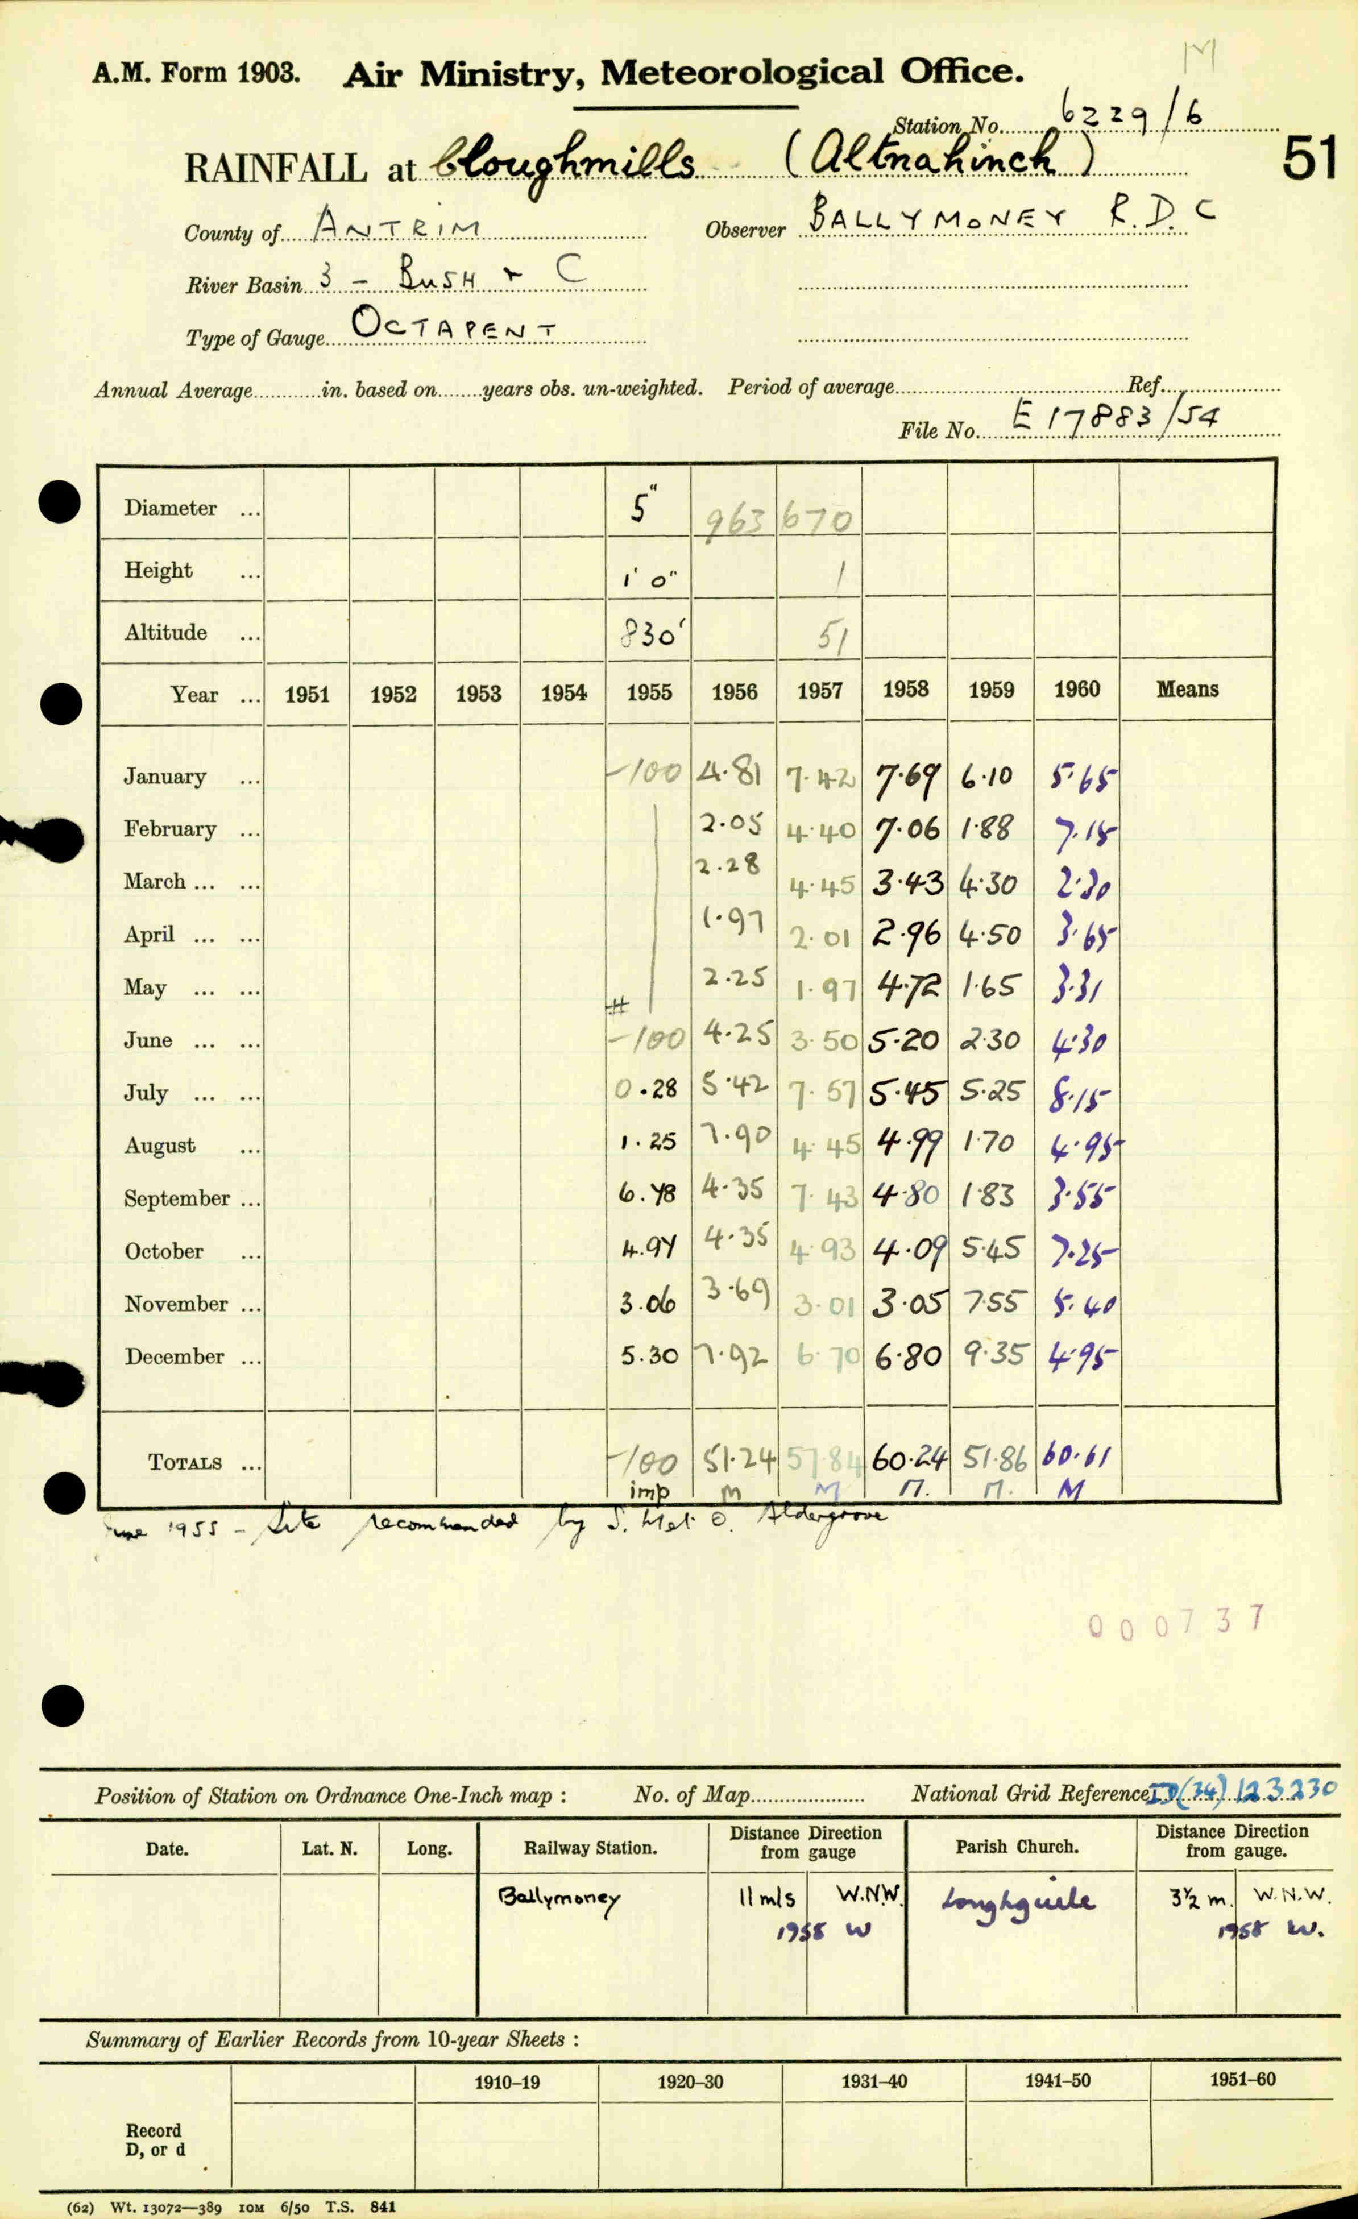 M
A.M. Form 1903. Air Ministry, Meteorological Office.
Station No. 6229/6
RAINFALL at Cloughmills (Altnahinch) 51
County of ANTRIM Observer BALLYMONEY R.D.C
River Basin 3 - BUSH + C
Type of Gauge OCTAPENT
Annual Average in. based on years obs. un-weighted. Period of average Ref.
File No. E 17883/54
Diameter ... 5" 963 670
Height ... 1' 0" 1
Altitude ... 830' 51
Year ... 1951 1952 1953 1954 1955 1956 1957 1958 1959 1960 Means
January ... -100 4.81 7.42 7.69 6.10 5.65
February ... 2.05 4.40 7.06 1.88 7.15
March ... ... 2.28 4.45 3.43 4.30 2.30
April ... ... 1.97 2.01 2.96 4.50 3.65
May ... ... # 2.25 1.97 4.72 1.65 3.31
June ... ... -100 4.25 3.50 5.20 2.30 4.30
July ... ... 0.28 5.42 7.57 5.45 5.25 8.15
August ... 1.25 7.90 4.45 4.99 1.70 4.95
September ... 6.48 4.35 7.43 4.80 1.83 3.55
October ... 4.94 4.35 4.93 4.09 5.45 7.25
November ... 3.06 3.69 3.01 3.05 7.55 5.40
December ... 5.30 7.92 6.70 6.80 9.35 4.95
TOTALS ... -100 51.24 57.84 60.24 51.86 60.61
imp M M M. M. M
June 1955 - Site recommended by S. Met O. Aldergrove
000737
Position of Station on Ordnance One-Inch map : No. of Map National Grid Reference (34) 123230
Date. Lat. N. Long. Railway Station. Distance from Direction gauge Parish Church. Distance from Direction gauge.
Ballymoney 11 mls W.N.W. Loughguile 3½ m. W.N.W.
1958 W 1958 W.
Summary of Earlier Records from 10-year Sheets :
1910–19 1920–30 1931–40 1941–50 1951–60
Record
D, or d
(62) Wt. 13072—389 10M 6/50 T.S. 841